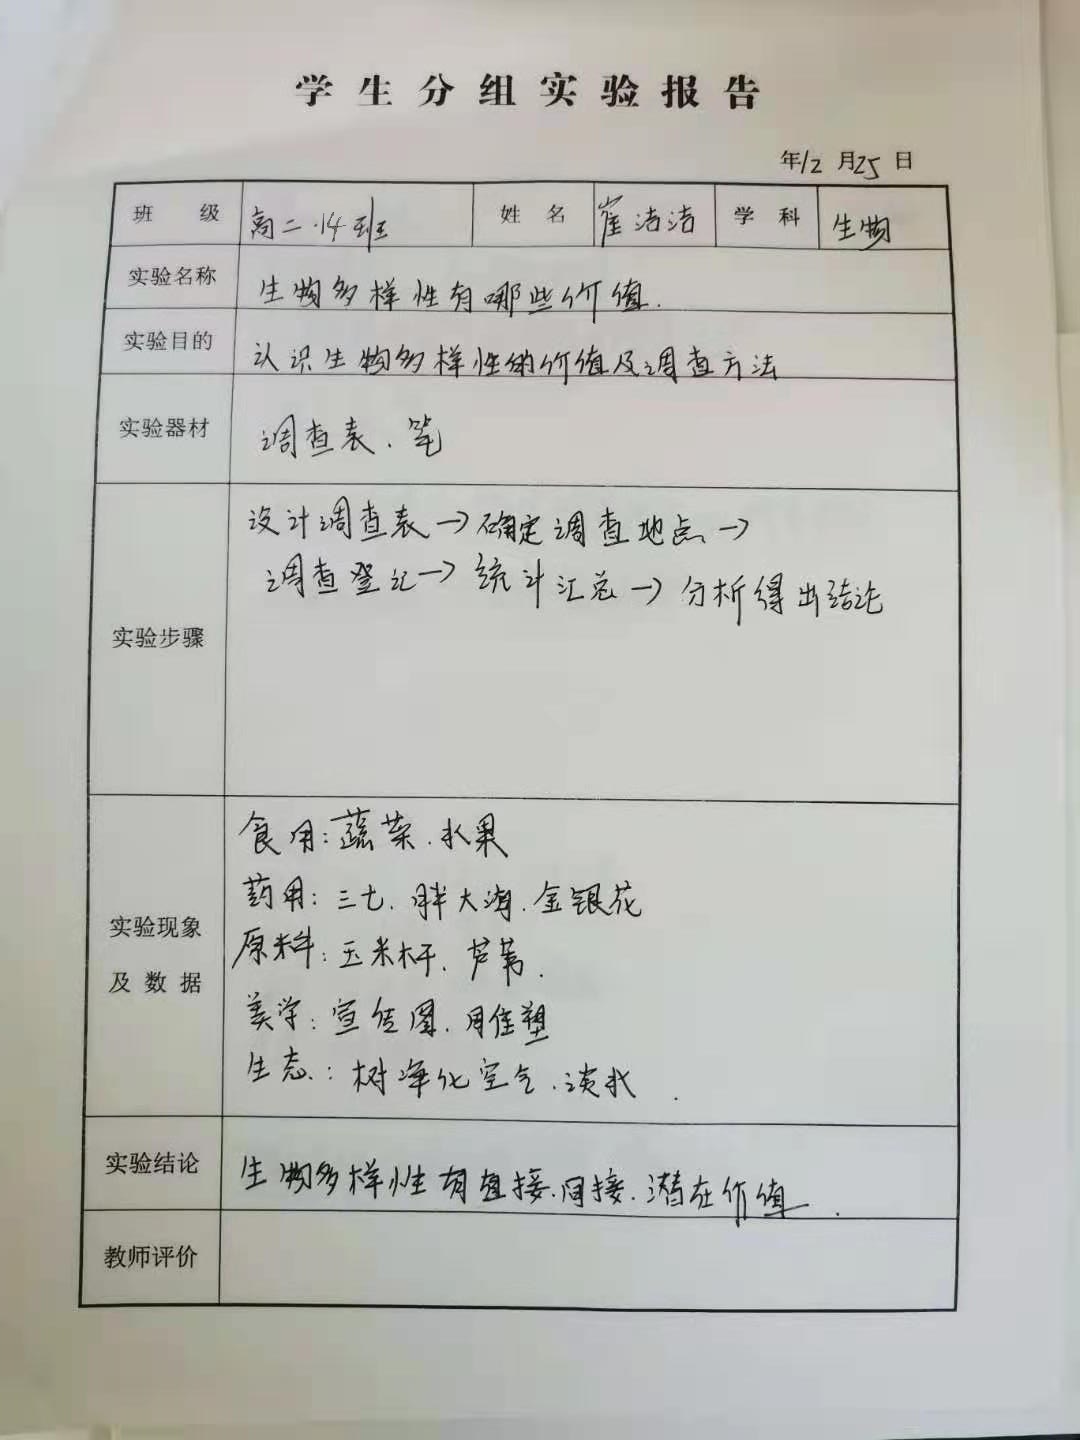 学生分组实验报告
年12月25日
班级 高二.14班 姓名 崔洁洁 学科 生物
实验名称 生物多样性有哪些价值.
实验目的 认识生物多样性的价值及调查方法
实验器材 调查表.笔
实验步骤
设计调查表→确定调查地点→
调查登记→统计汇总→分析得出结论
实验现象
及数据
食用:蔬菜.水果
药用:三七.胖大海.金银花
原料:玉米杆.芦苇.
美学:宣传图.
生态:树净化空气.
实验结论 生物多样性有直接.间接.潜在价值.
教师评价